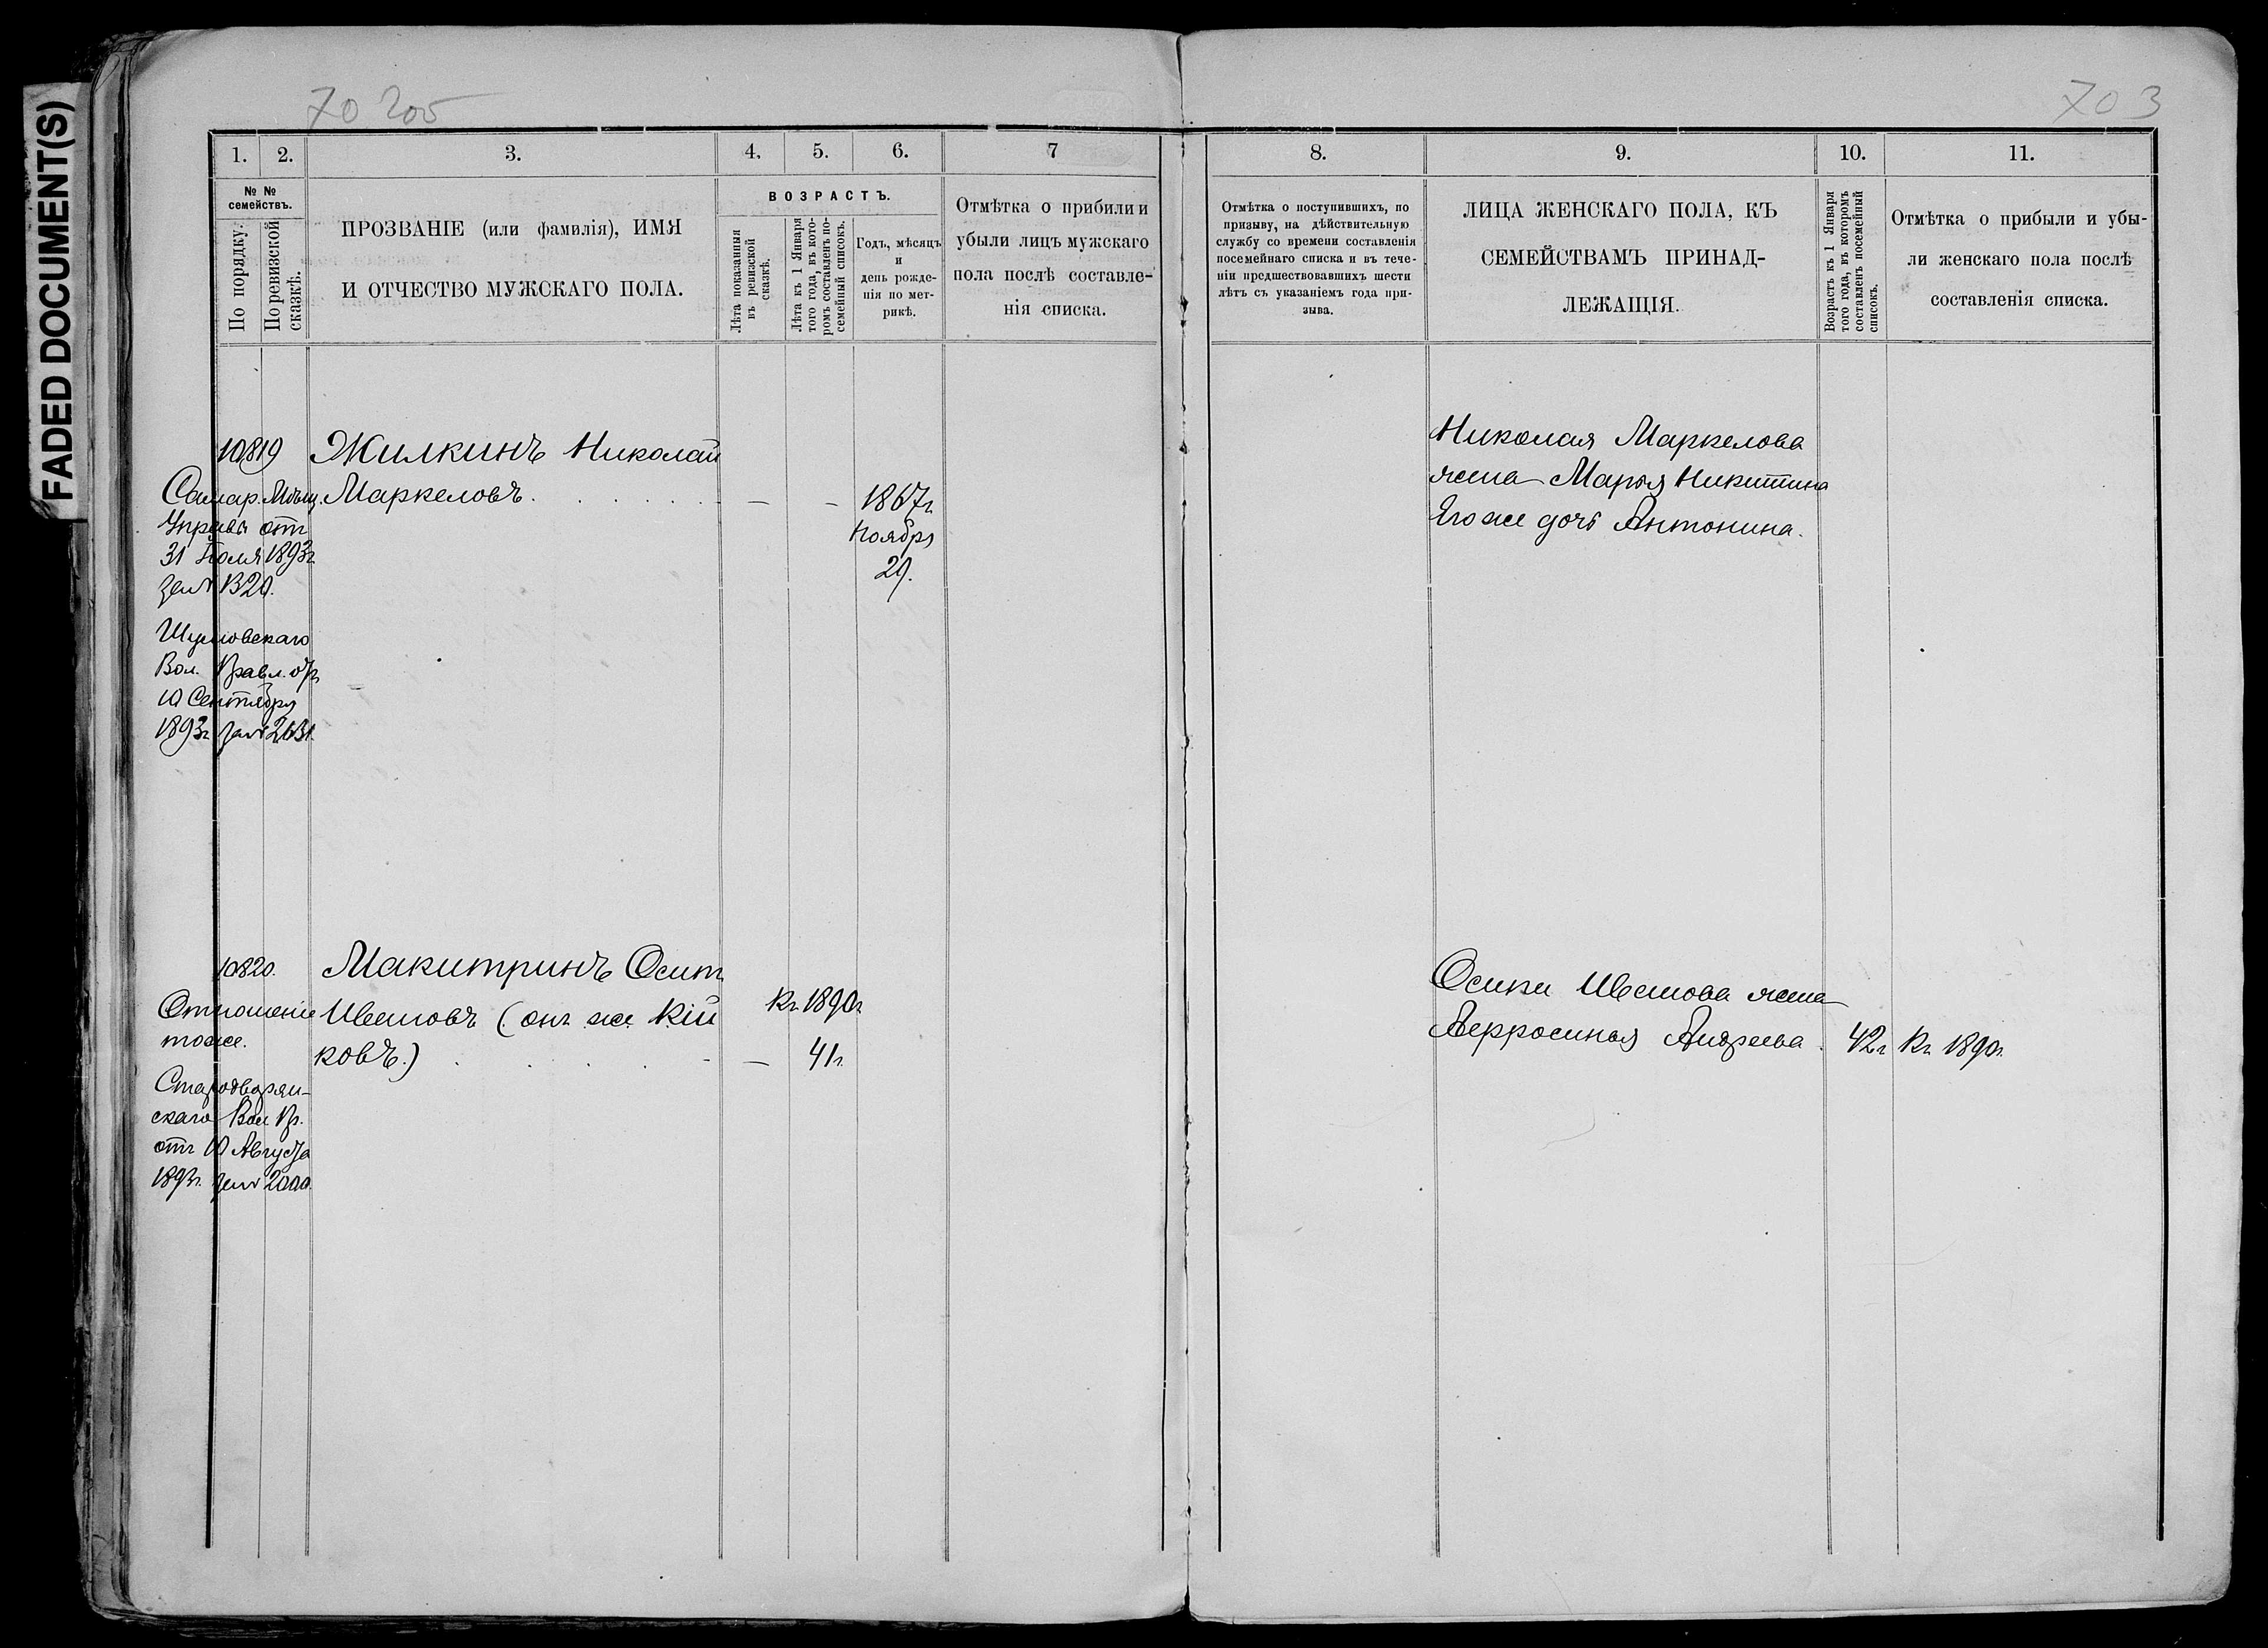 FADED DOCUMENT(S)
70 205
703
1.
2.
3.
4.
5.
6.
7
8.
9.
10.
11.
№ №
семействъ.
По порядку.
По ревизской
сказкѣ.
ПРОЗВАНІЕ (или фамилія), ИМЯ
И ОТЧЕСТВО МУЖСКАГО ПОЛА.
ВОЗРАСТЪ.
Лѣта показанныя
въ ревизской
сказкѣ.
Лѣта къ 1 Января
того года, въ кото-
ромъ составленъ по-
семейный списокъ.
Годъ, мѣсяцъ
и
день рожде-
нія по мет-
рикѣ.
Отмѣтка о прибыли и
убыли лицъ мужскаго
пола послѣ составле-
нія списка.
Отмѣтка о поступившихъ, по
призыву, на дѣйствительную
службу со времени составленія
посемейнаго списка и въ тече-
ніи предшествовавшихъ шести
лѣтъ съ указаніемъ года при-
зыва.
ЛИЦА ЖЕНСКАГО ПОЛА, КЪ
СЕМЕЙСТВАМЪ ПРИНАД-
ЛЕЖАЩІЯ.
Возрастъ къ 1 Января
того года, въ которомъ
составленъ посемейный
списокъ.
Отмѣтка о прибыли и убы-
ли женскаго пола послѣ
составленія списка.
10819
Жилкинъ Николай
Маркеловъ.
— — 1867г
Ноября
29.
Самар. Мѣщ.
Управы отъ
31 Іюля 1893г
за №
Шумовскаго
Вол. Правл. отъ
10 Сентября
1893г за № 2631.
Николая Маркелова
жена Марья Никитина
Его же дочь Антонина.
10820.
Макитринъ Осипъ
Ивановъ (онъ же Кій
ковъ.)
—
Къ 1890г
41г.
Отношеніе
тоже.
Стародворян-
скаго Вол. Пр.
отъ 10 Августа
1893г. за № 2000.
Осипа Иванова жена
Ефросинья Андреева.
42г
Къ 1890г.